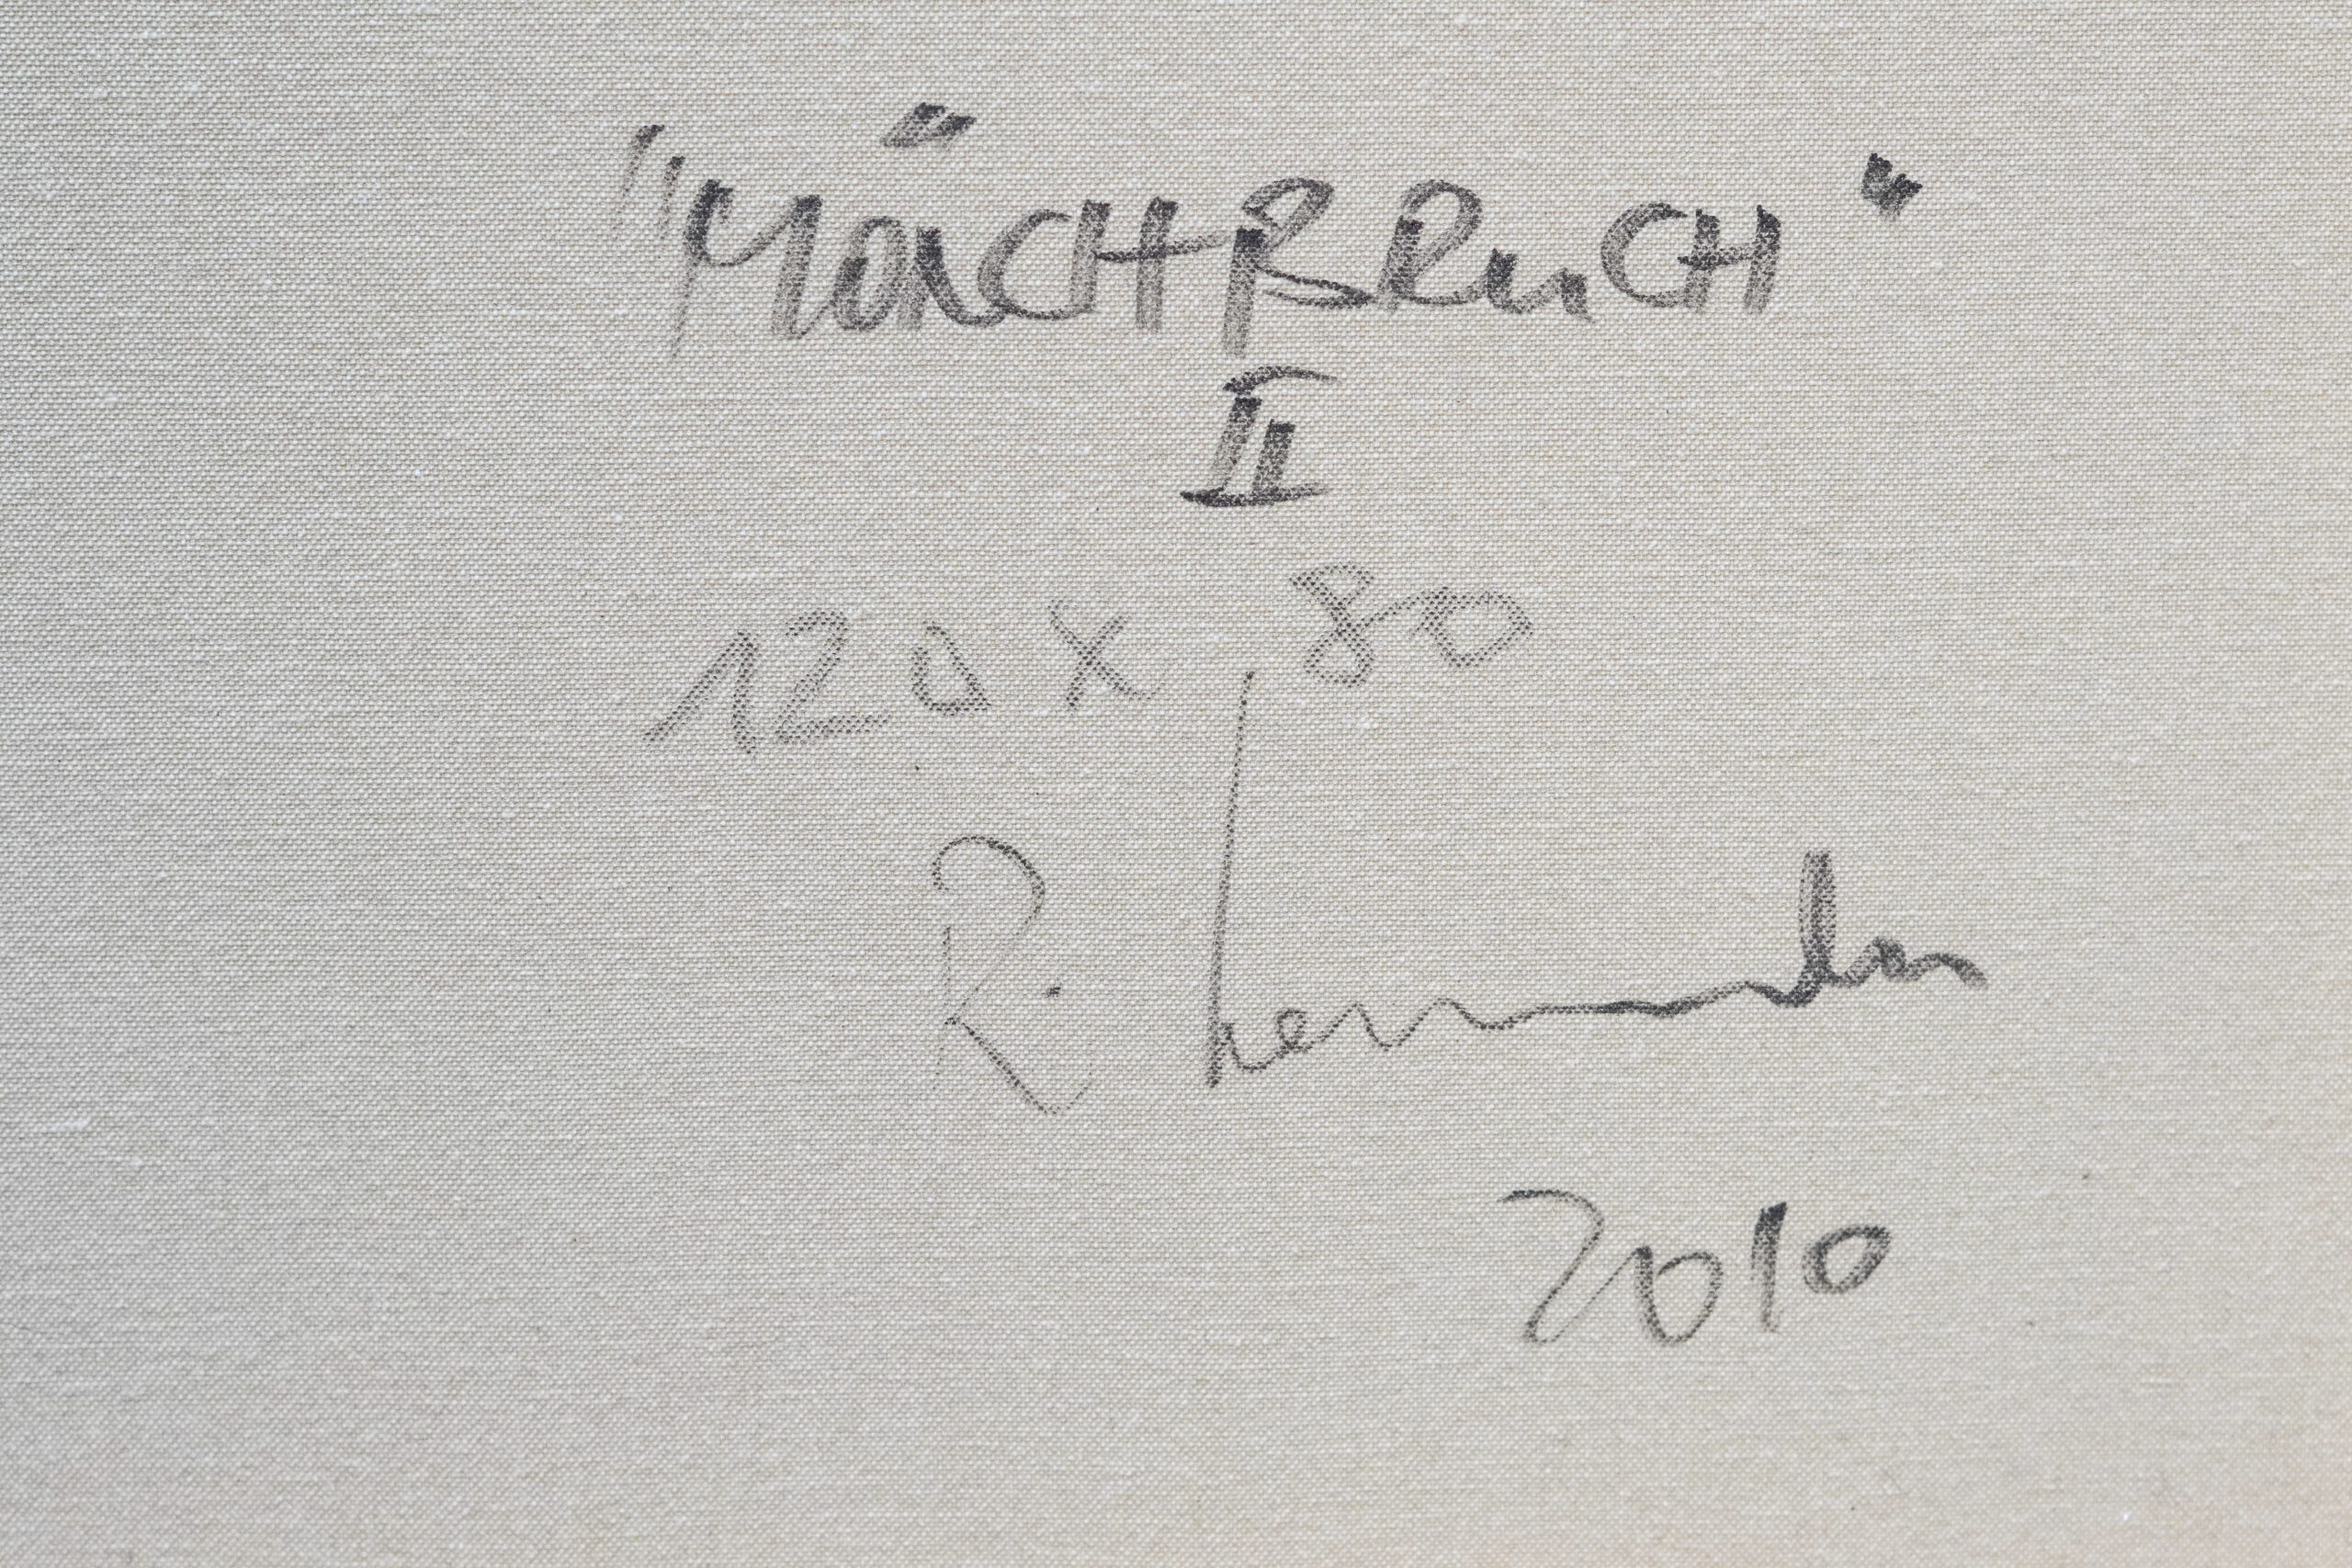 "MÖNCHBRUCH"
II
120 x 80
R.
2010